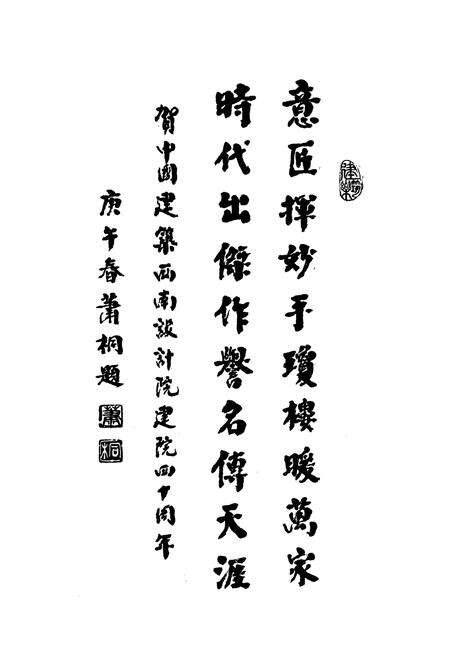 意匠揮妙手瓊樓暖萬家
時代出傑作譽名傳天涯
賀中國建築西南設計院建院四十周年
庚午春蕭桐題
蕭
桐